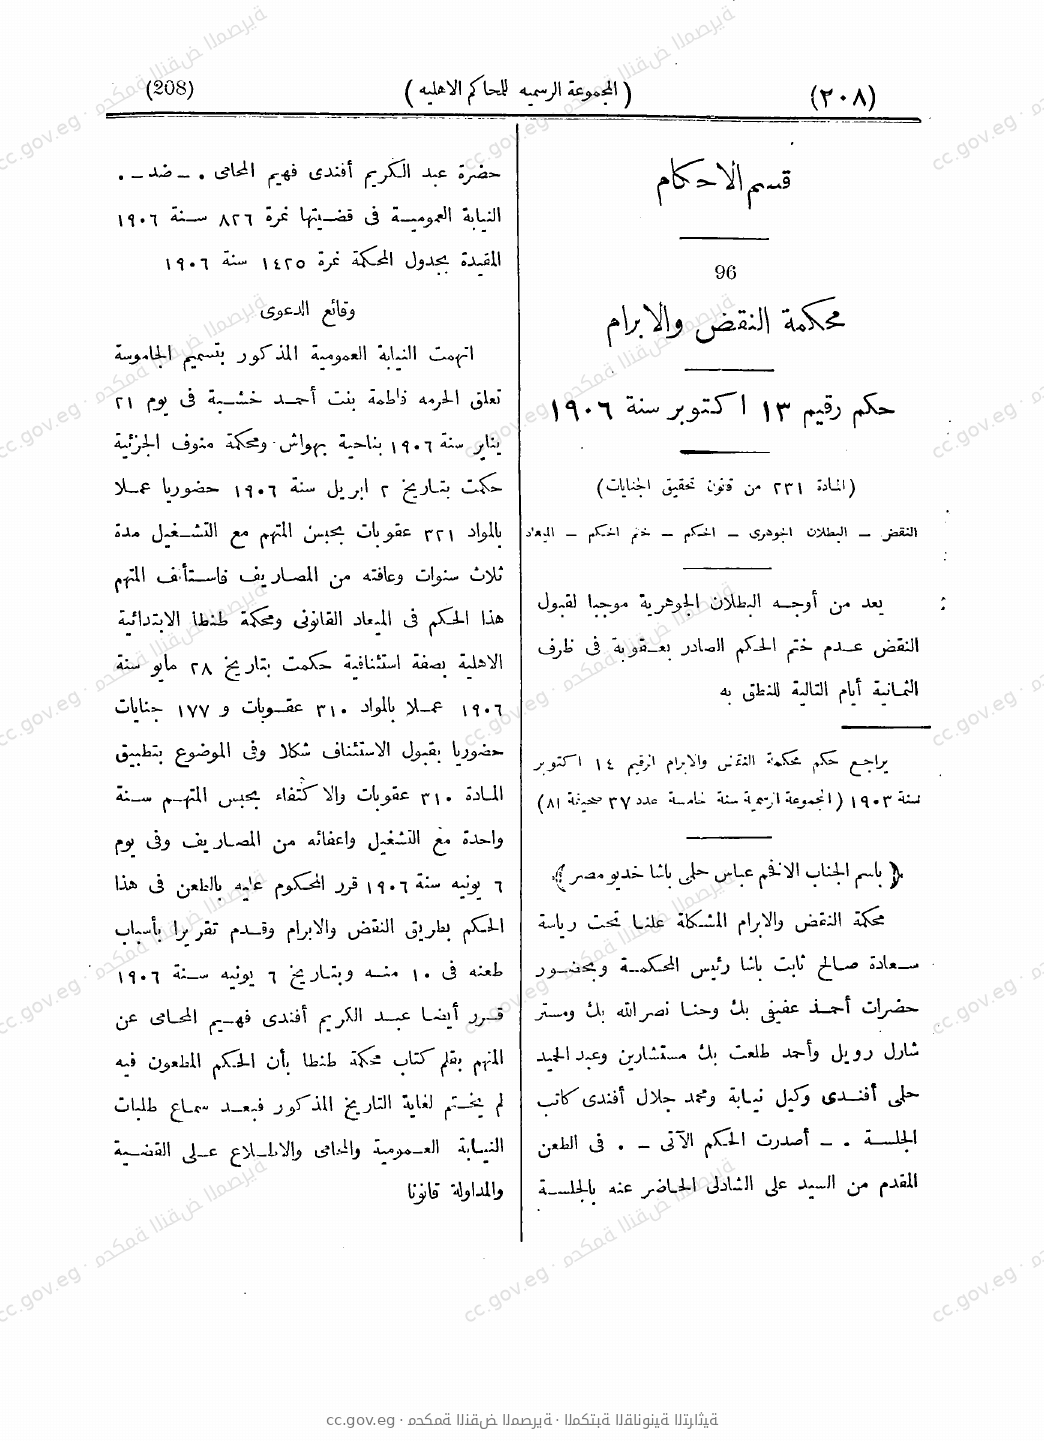 (٢٠٨)
(المجموعة الرسميه للمحاكم الاهليه)
(208)
قسم الاحكام
96
محكمة النقض والابرام
حكم رقيم ١٣ اكتوبر سنة ١٩٠٦
(المادة ٢٣١ من قانون تحقيق الجنايات)
النقض – البطلان الجوهرى – الحكم – ختم الحكم – الميعاد
يعد من أوجه البطلان الجوهرية موجبا لقبول
النقض عدم ختم الحكم الصادر بعقوبة فى ظرف
الثمانية أيام التالية للنطق به
يراجع حكم محكمة النقض والابرام الرقيم ١٤ اكتوبر
سنة ١٩٠٣ (المجموعة الرسمية سنة خامسة عدد ٣٧ صحيفة ٨١)
﴿باسم الجناب الافخم عباس حلمى باشا خديو مصر﴾
محكمة النقض والابرام المشكلة علنا تحت رياسة
سعادة صالح ثابت باشا رئيس المحكمة وبحضور
حضرات أحمد عفيفى بك وحنا نصر الله بك ومستر
شارل رويل وأحمد طلعت بك مستشارين وعبد الحميد
حلمى أفندى وكيل نيابة ومحمد جلال أفندى كاتب
الجلسة . – أصدرت الحكم الآتى – . فى الطعن
المقدم من السيد على الشاذلى الحاضر عنه بالجلسة
حضرة عبد الكريم أفندى فهيم المحامى . – ضد – .
النيابة العمومية فى قضيتها نمرة ٨٢٦ سنة ١٩٠٦
المقيدة بجدول المحكمة نمرة ١٤٢٥ سنة ١٩٠٦
وقائع الدعوى
اتهمت النيابة العمومية المذكور بتسميم الجاموسة
تعلق الحرمه فاطمة بنت أحمد خشبة فى يوم ٢١
يناير سنة ١٩٠٦ بناحية بهواش ومحكمة منوف الجزئية
حكمت بتاريخ ٢ ابريل سنة ١٩٠٦ حضوريا عملا
بالمواد ٣٢١ عقوبات بحبس المتهم مع التشغيل مدة
ثلاث سنوات وعافته من المصاريف فاستأنف المتهم
هذا الحكم فى الميعاد القانونى ومحكمة طنطا الابتدائية
الاهلية بصفة استئنافية حكمت بتاريخ ٢٨ مايو سنة
١٩٠٦ عملا بالمواد ٣١٠ عقوبات و ١٧٧ جنايات
حضوريا بقبول الاستئناف شكلا وفى الموضوع بتطبيق
المادة ٣١٠ عقوبات والاكتفاء بحبس المتهم سنة
واحدة مع التشغيل واعفائه من المصاريف وفى يوم
٦ يونيه سنة ١٩٠٦ قرر المحكوم عليه بالطعن فى هذا
الحكم بطريق النقض والابرام وقدم تقريرا بأسباب
طعنه فى ١٠ منه وبتاريخ ٦ يونيه سنة ١٩٠٦
قرر أيضا عبد الكريم أفندى فهيم المحامى عن
المتهم بقلم كتاب محكمة طنطا بأن الحكم المطعون فيه
لم يختم لغاية التاريخ المذكور فبعد سماع طلبات
النيابة العمومية والمحامى والاطلاع على القضية
والمداولة قانونا
cc.gov.eg · محكمة النقض المصرية · المكتبة القانونية التراثية